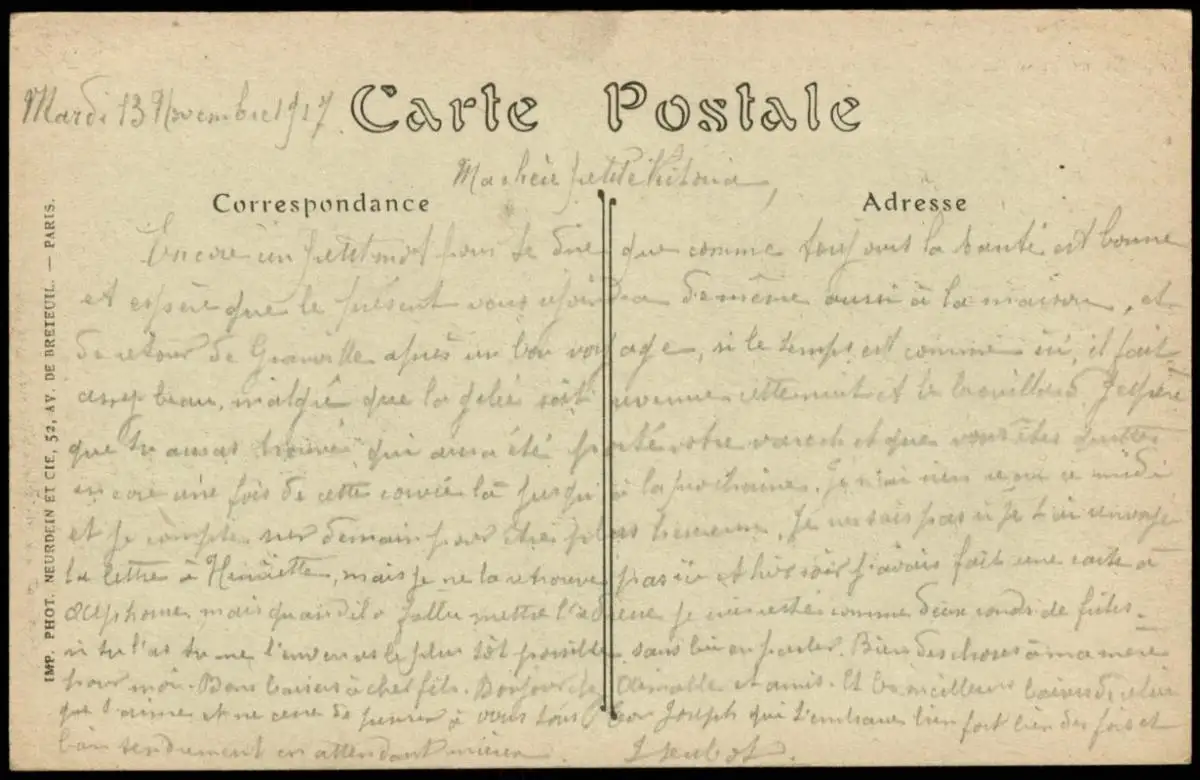 Mardi 13 Novembre 1917
Carte Postale
Ma chère petite Victoria,
Correspondance
Adresse
Encore un petit mot pour te dire que comme toujours la santé est bonne
et espère que le présent vous rejoindra de même aussi à la maison, et
de retour de Granville après un bon voyage, si le temps est comme ici, il fait
assez beau, malgré que la gelée soit revenue et le brouillard J'espère
que tu auras trouvé qui aura été porté votre varech et que vous êtes quittes
encore une fois de cette corvée là jusqu'à la prochaine. Je n'ai rien reçu ce midi
et je compte sur demain pour être plus heureux. Je ne sais pas si je t'ai envoyé
la lettre à Henriette, mais je ne la retrouve pas ici et hier soir j'avais fait une carte à
Alphonse mais quand il a fallu mettre l'adresse je suis resté comme deux ronds de frites.
si tu l'as tu me l'enverras le plus tôt possible sans lui en parler. Bien des choses à ma mère
pour moi. Bons baisers à cher fils. Bonjour chez Aimable et amis. Et les meilleurs baisers de celui
qui t'aime et ne cesse de penser à vous tous Ton Joseph qui t'embrasse bien fort bien des fois et
bien tendrement en attendant mieux
IMP. PHOT. NEURDEIN ET CIE, 52, AV. DE BRETEUIL. — PARIS.